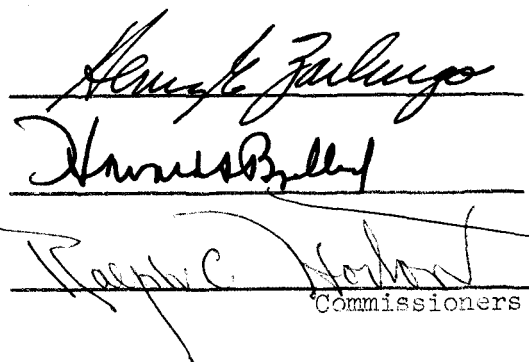 Henry E. Zarlengo
Howard S. Bjelland
Ralph C. Horton
Commissioners